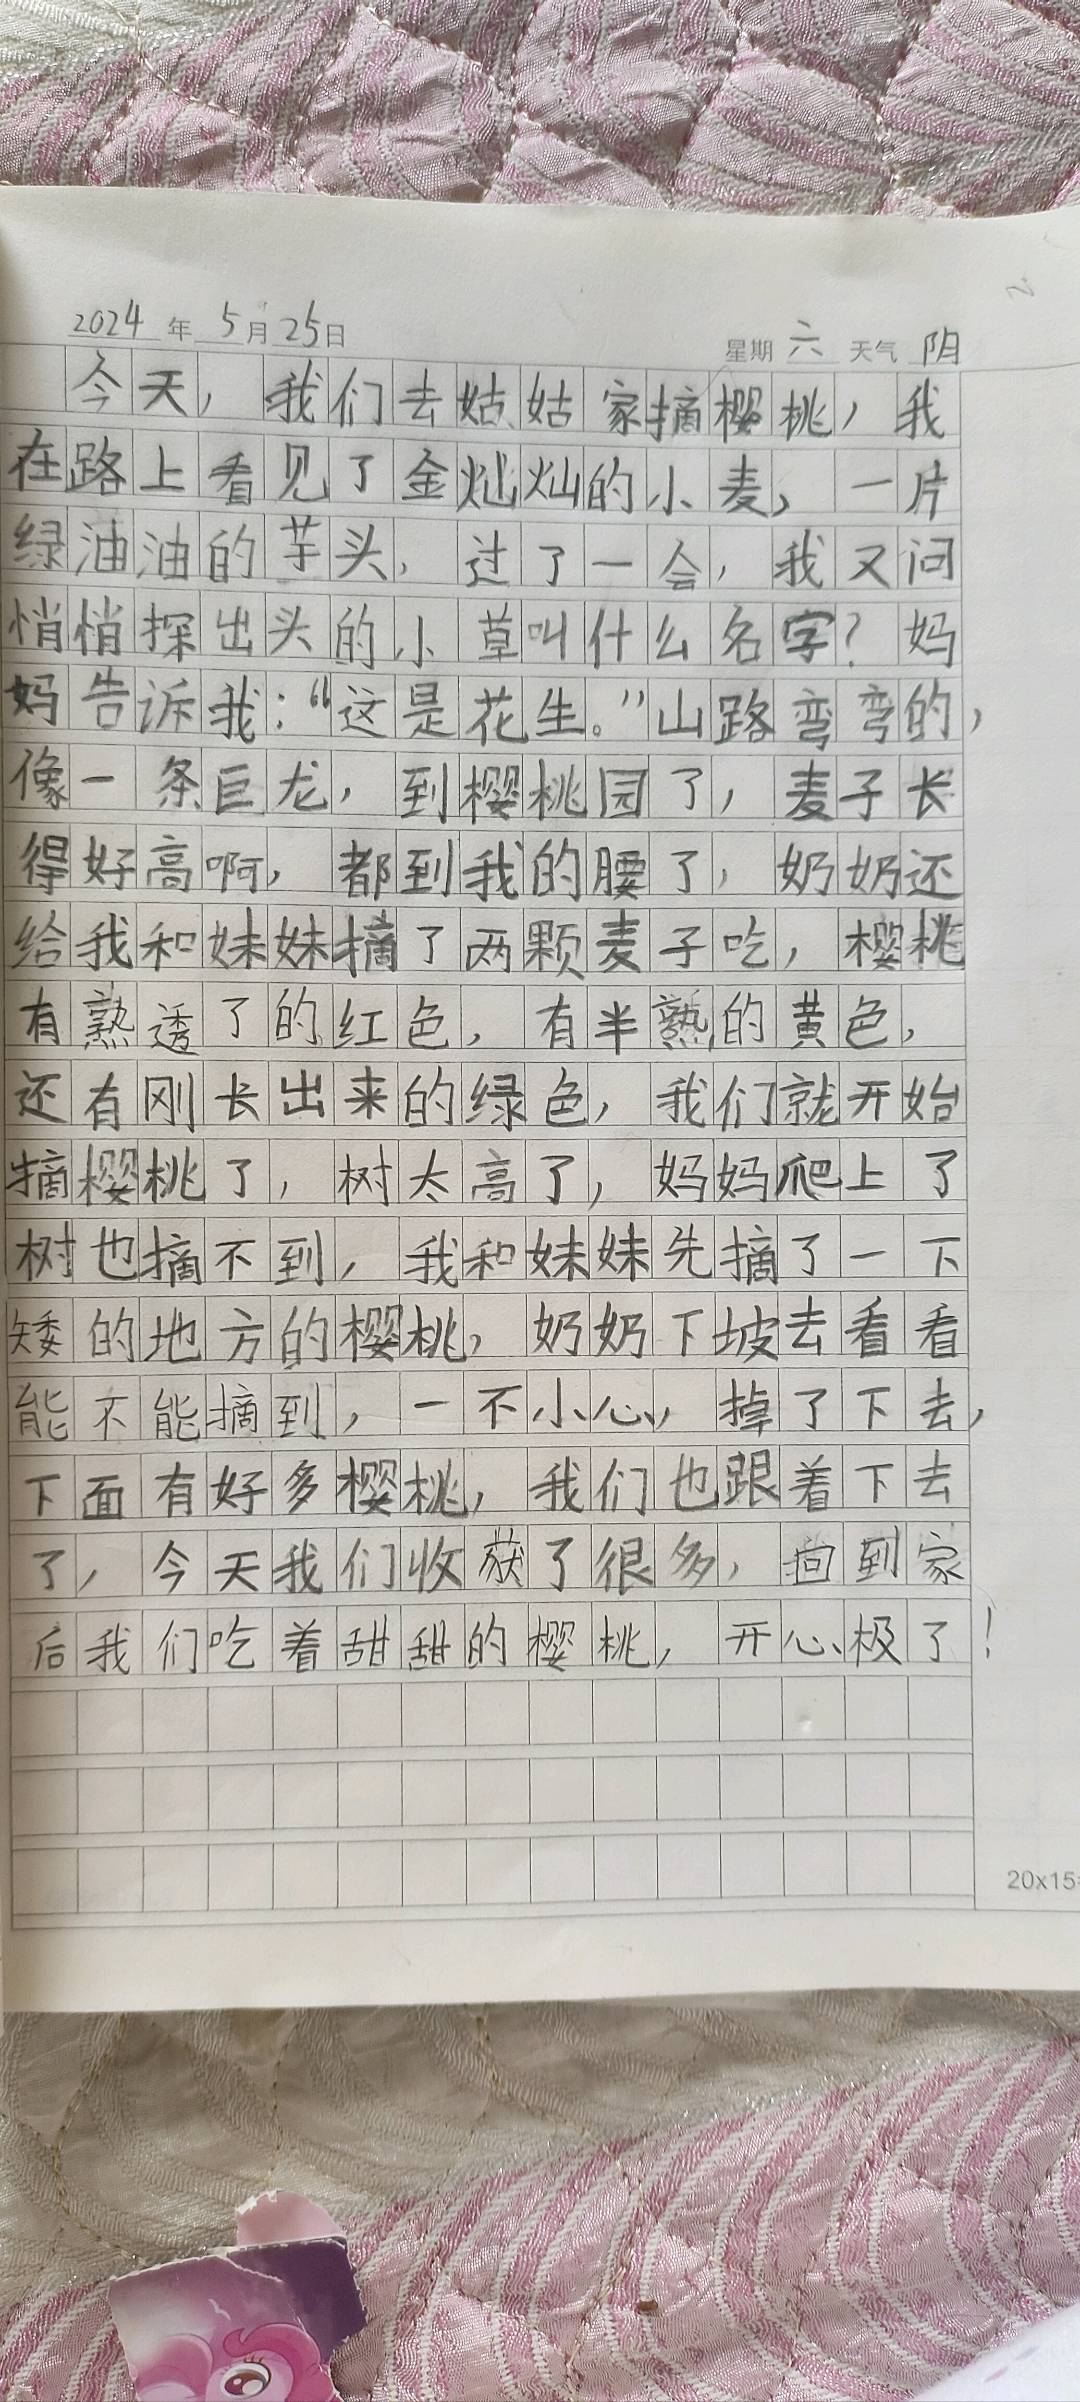 2024年5月25日 星期六 天气 阴
今天，我们去姑姑家摘樱桃，我
在路上看见了金灿灿的小麦，一片
绿油油的芋头，过了一会，我又问
悄悄探出头的小草叫什么名字？妈
妈告诉我：“这是花生。”山路弯弯的，
像一条巨龙，到樱桃园了，麦子长
得好高啊，都到我的腰了，奶奶还
给我和妹妹摘了两颗麦子吃，樱桃
有熟透了的红色，有半熟的黄色，
还有刚长出来的绿色，我们就开始
摘樱桃了，树太高了，妈妈爬上了
树也摘不到，我和妹妹先摘了一下
矮的地方的樱桃，奶奶下坡去看看
能不能摘到，一不小心，掉了下去，
下面有好多樱桃，我们也跟着下去
了，今天我们收获了很多，回到家
后我们吃着甜甜的樱桃，开心极了！
20x15=